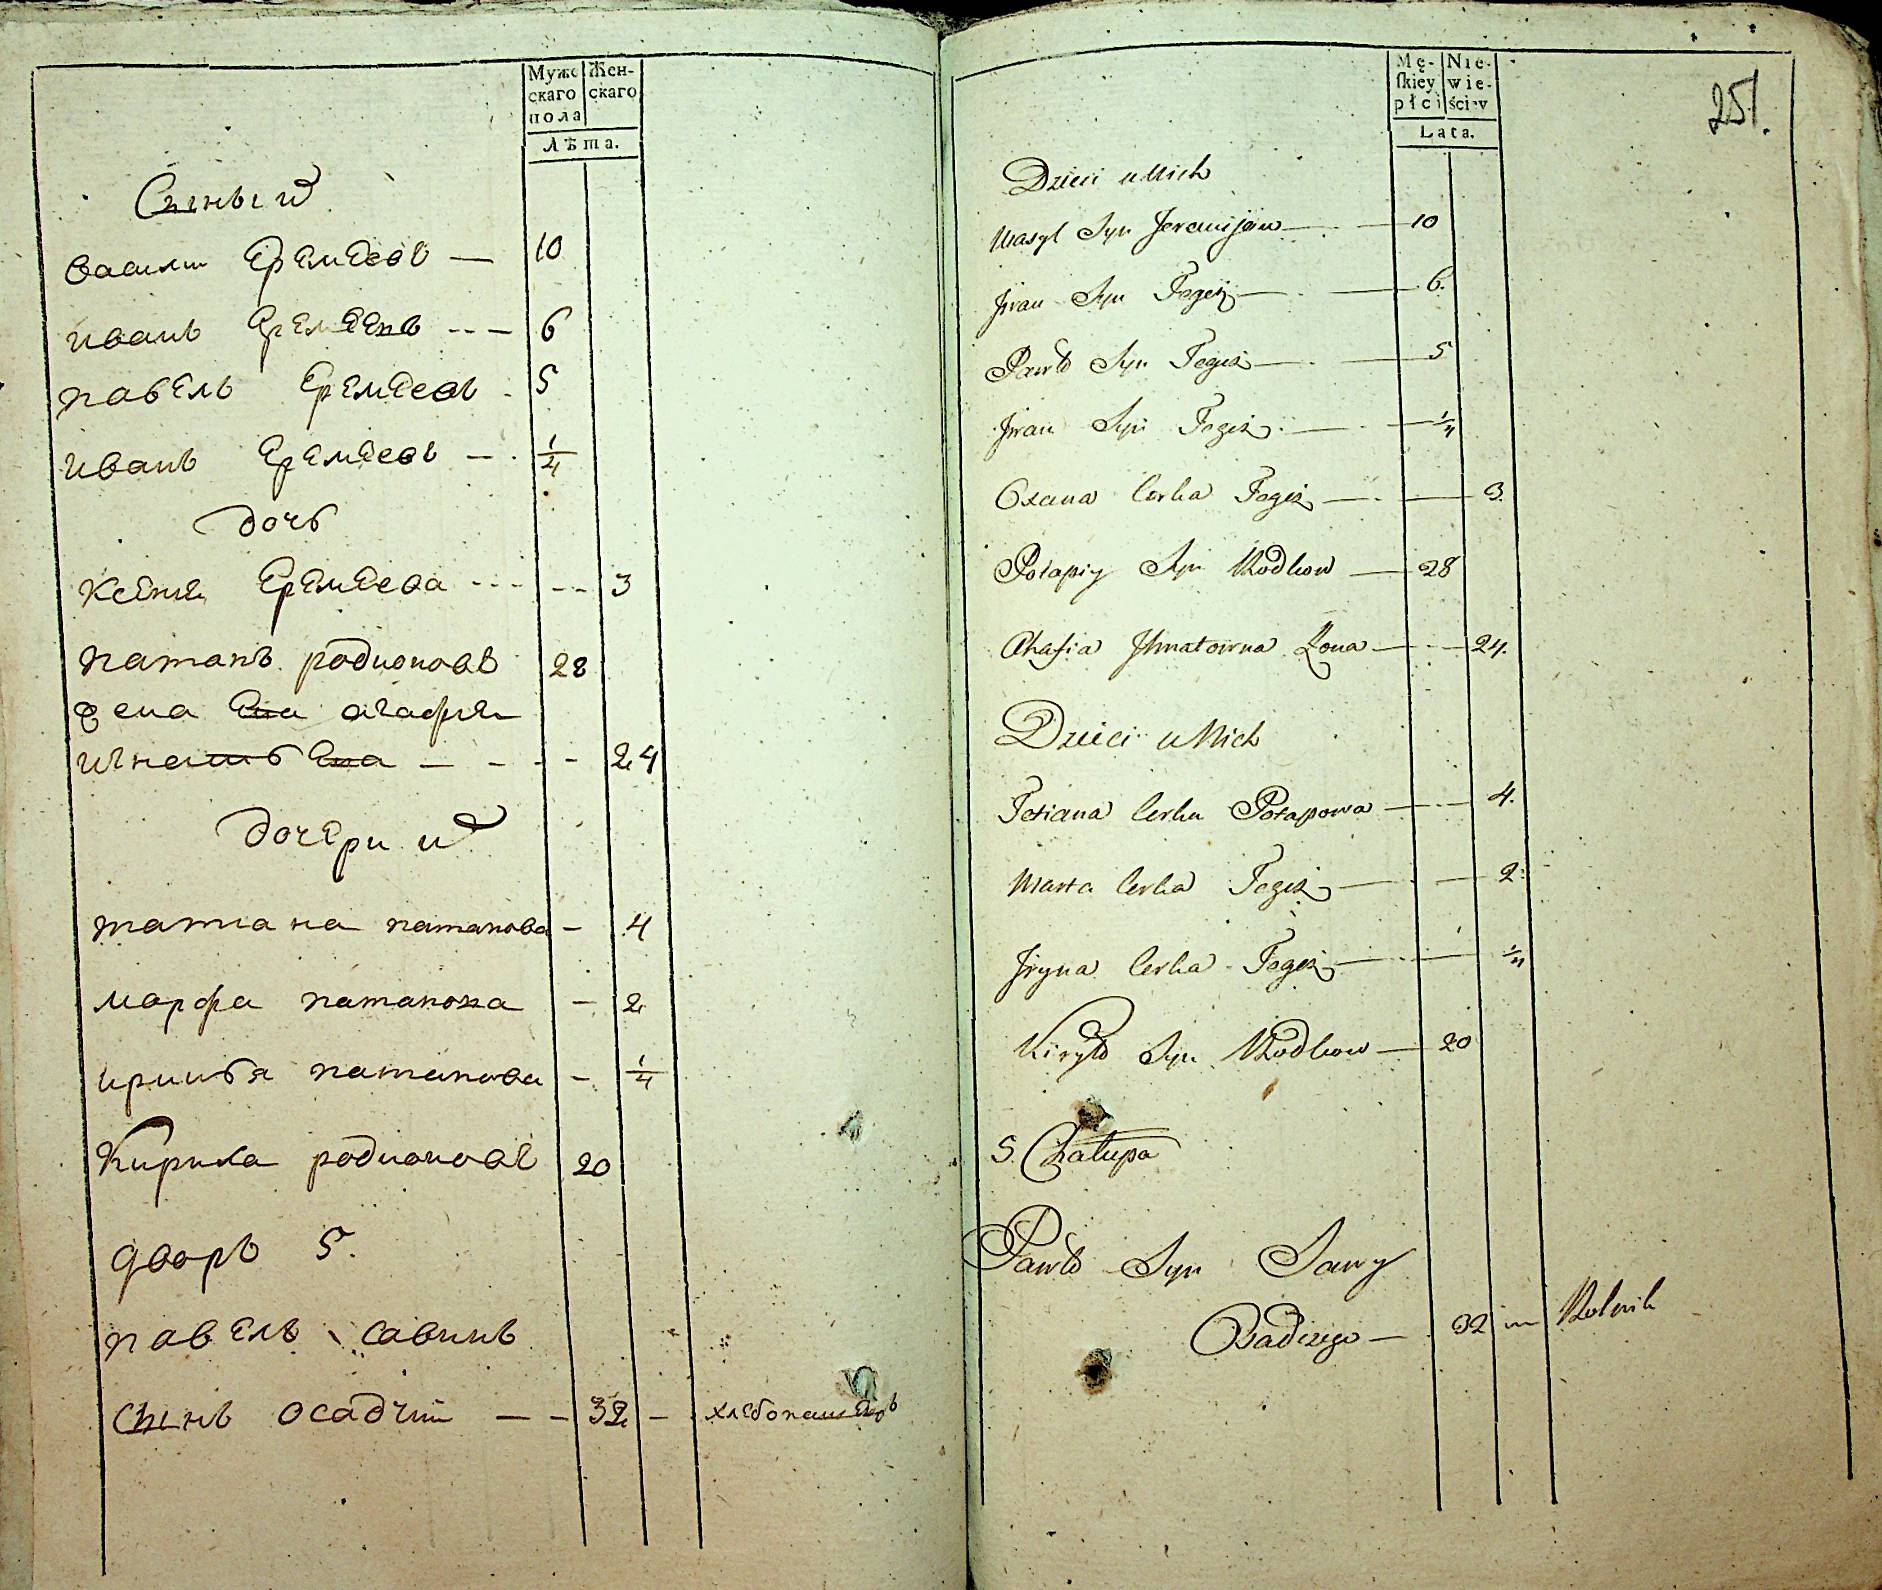 Мужс Жен-
скаго скаго
пола
Лѣта.
Сыны их
василий Еремеевъ — 10
иванъ Еремеевъ --- 6
павелъ Еремеевъ . 5
иванъ Еремеевъ — 1/4
дочь
ксения Еремеева --- -- 3
патапъ родионовъ 28
жена Ева агафия
игнатьева — - - - 24
дочери их
татиана патапова — 4
марфа патапова — 2
ириння патапова — 1/4
Кирила родионовъ 20
дворъ 5.
павелъ савинъ
сынъ осадчий — — 32 — хлебопашецъ
251.
Mę- Nie-
ſkiey wie-
płci ściey
Lata.
Dzieci u Nich
Wasyl Syn Jeremijow — 10
Jwan Syn Tegoż — 6.
Pawło Syn Tegoż — 5
Jwan Syn Tegoż — 1/4
Oxana Corka Tegoż — 3.
Potapiy Syn Rodkow — 28
Ahafia Jhnatowna Żona — 24.
Dzieci u Nich
Tetiana Corka Potapowa — 4.
Marta Corka Tegoż — 2
Jryna Corka Tegoż — 1/4
Kiryło Syn Rodkow — 20
5. Chałupa
Pawło Syn Sawy
Osadczego — 32 — Rolnik